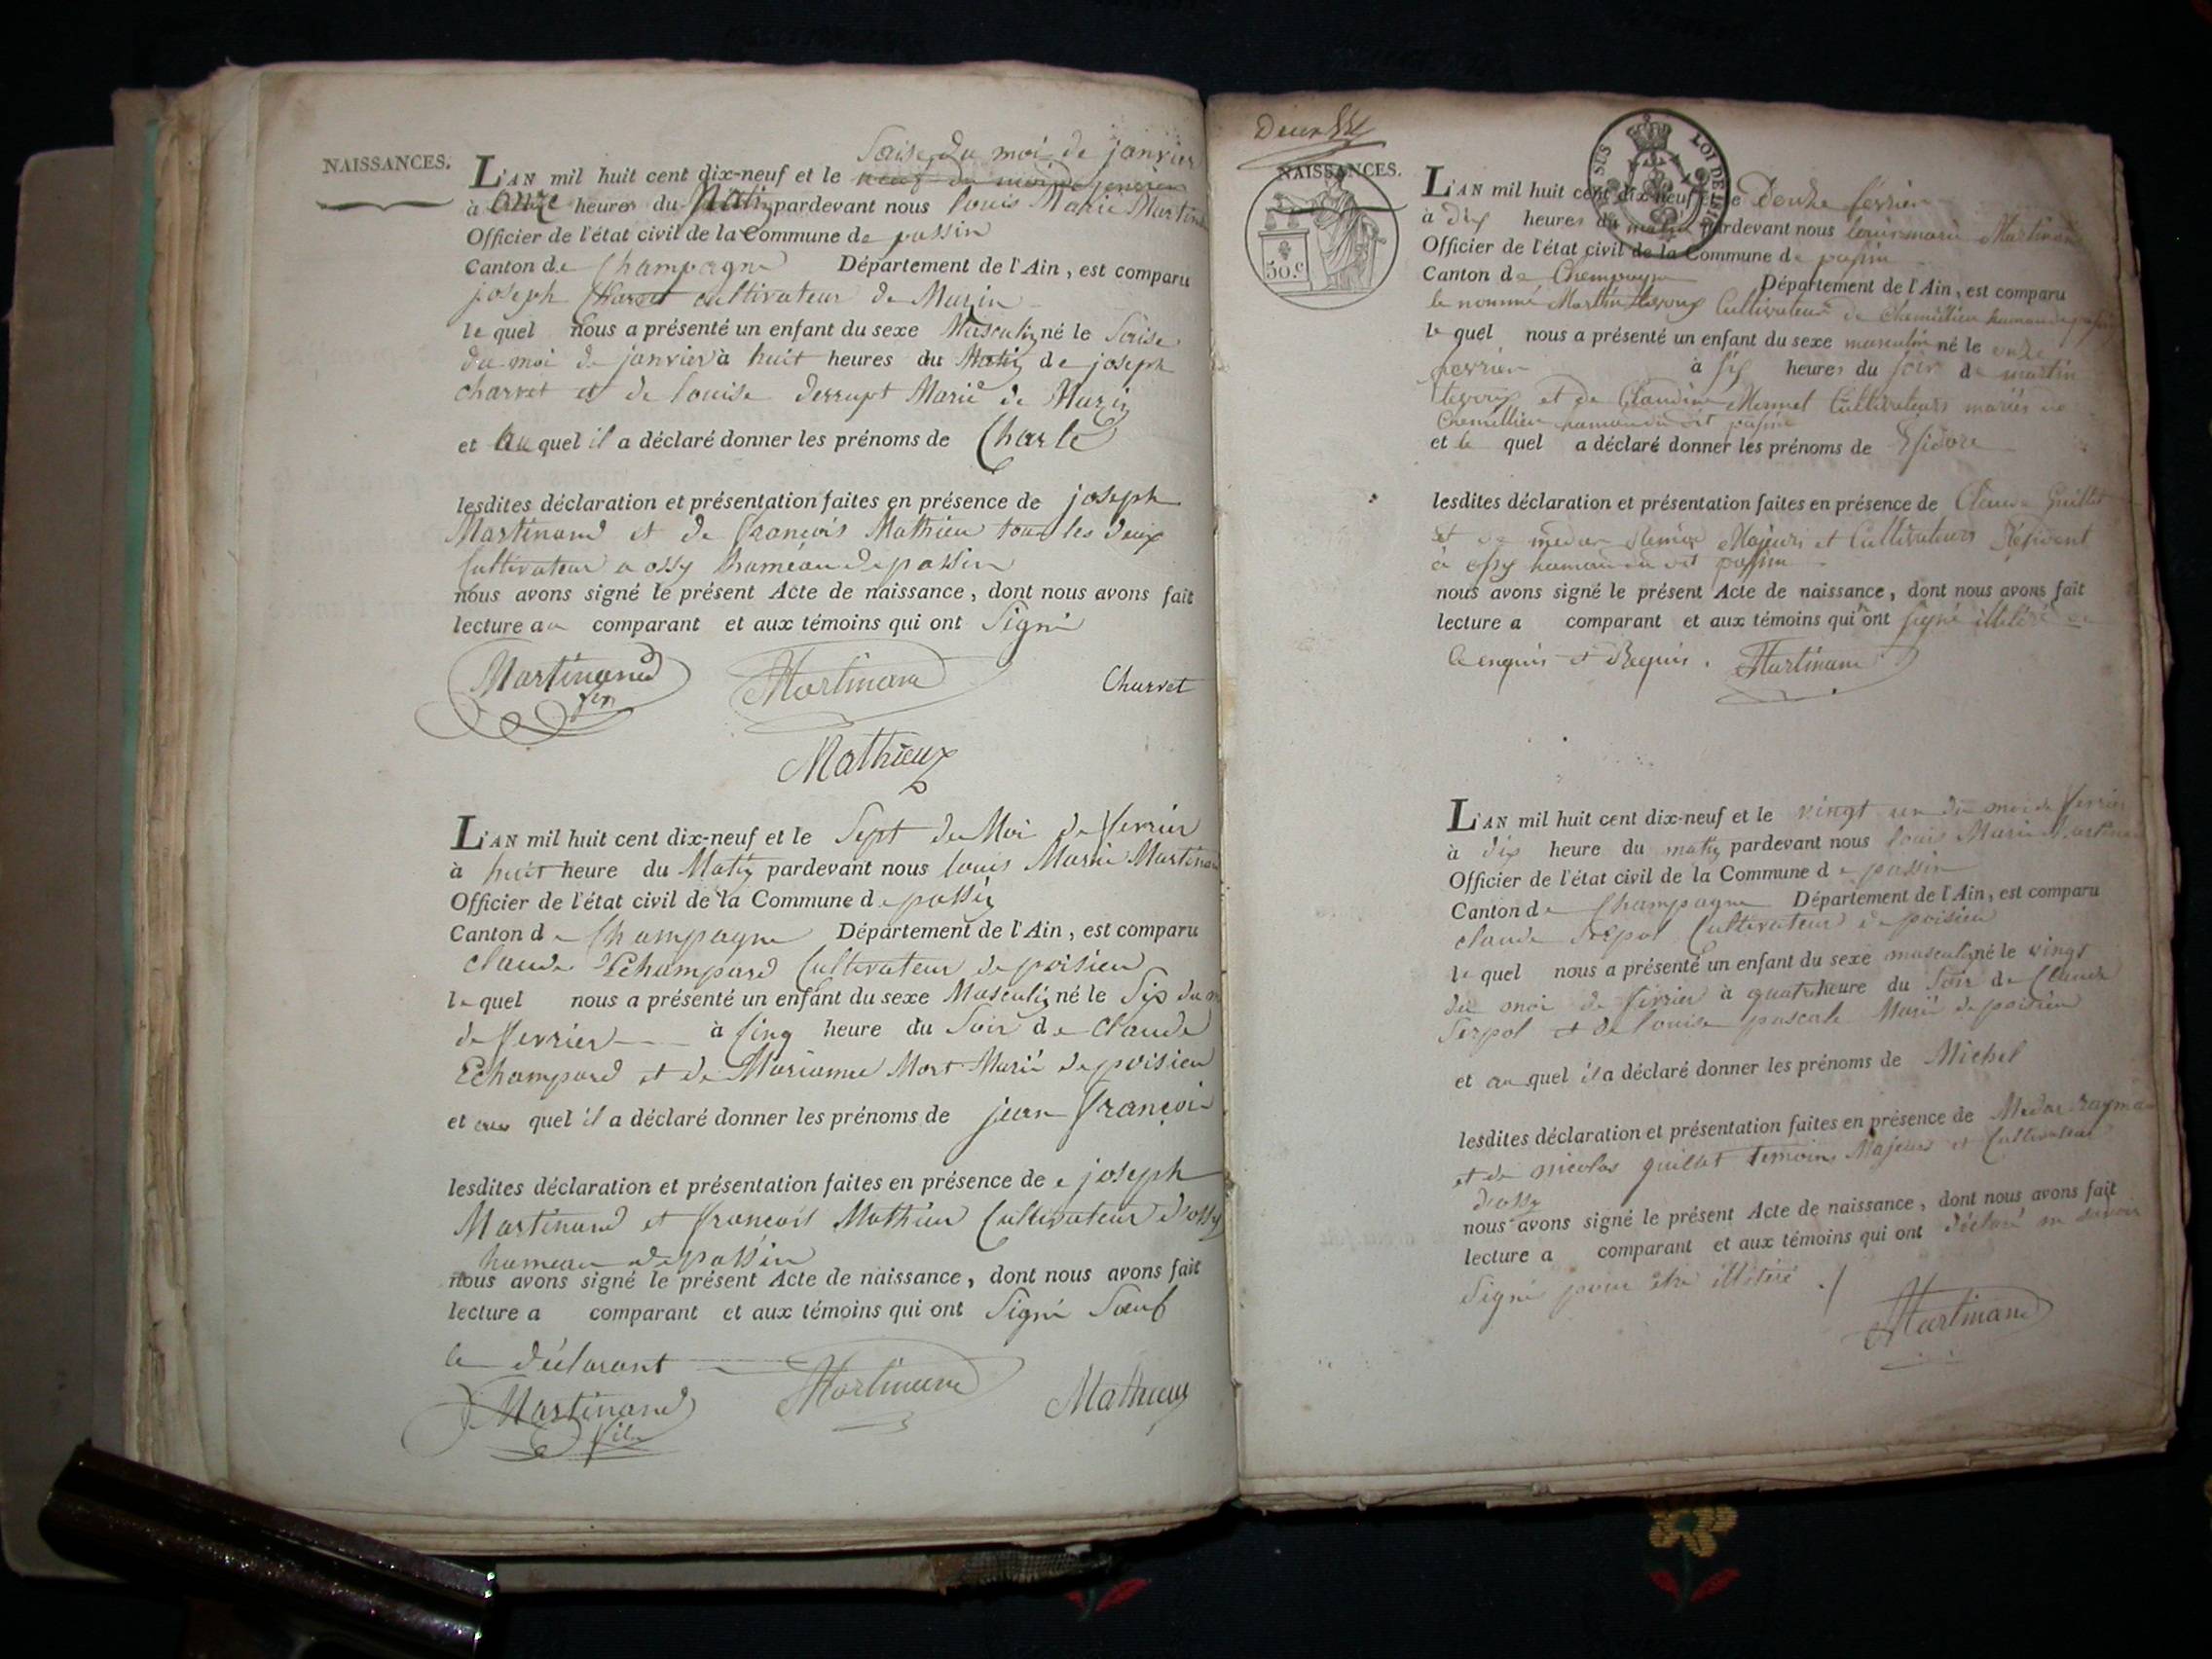 NAISSANCES.
Saise du moi de janvier
L'AN mil huit cent dix-neuf et le neuf du moi de janvier
à onze heures du Matin pardevant nous louis Marie Martinand
Officier de l'état civil de la Commune de passin
Canton de Champagne Département de l'Ain, est comparu
joseph Charvet cultivateur de Muzin
le quel nous a présenté un enfant du sexe Masculin né le Saise
du moi de janvier à huit heures du Matin de joseph
charvet et de louise derrupt Marié de Muzin
et au quel il a déclaré donner les prénoms de Charle
lesdites déclaration et présentation faites en présence de joseph
Martinand et de françois Mathieu tous les deux
Cultivateur a ossy hameau de passin
nous avons signé le présent Acte de naissance, dont nous avons fait
lecture au comparant et aux témoins qui ont Signé
Martinand Martinand Charvet
Mathieux
L'AN mil huit cent dix-neuf et le Sept du Moi de fevrier
à huit heure du Matin pardevant nous louis Marie Martinand
Officier de l'état civil de la Commune de passin
Canton de Champagne Département de l'Ain, est comparu
claude Echampard Cultivateur de poisieu
le quel nous a présenté un enfant du sexe Masculin né le Six du m
de fevrier à Sinq heure du Soir de claude
Echampard et de Marianne Mort Marié de poisieu
et au quel il a déclaré donner les prénoms de jean françois
lesdites déclaration et présentation faites en présence de joseph
Martinand et françois Mathieu Cultivateur d'ossy
hameau de passin
nous avons signé le présent Acte de naissance, dont nous avons fait
lecture a comparant et aux témoins qui ont Signé Sauf
le déclarant
Martinand fils Martinand Mathieux
Deux
SIS LOI DE 1816
NAISSANCES.
50.c
L'AN mil huit cent dix-neuf et le Douze février
à dix heures du matin pardevant nous louis marie Martinand
Officier de l'état civil de la Commune de passin
Canton de Champagne Département de l'Ain, est comparu
le nommé Martin Cultivateur de hameau de passin
le quel nous a présenté un enfant du sexe masculin né le onze
fevrier à six heures du soir de martin
et de Claudine Monnet Cultivateurs mariés
hameau du dit passin
et le quel a déclaré donner les prénoms de Isidore
lesdites déclaration et présentation faites en présence de Claude Guillet
et de medar Majeurs et Cultivateurs Résident
à ossy hameau du dit passin
nous avons signé le présent Acte de naissance, dont nous avons fait
lecture a comparant et aux témoins qui ont signé illitéré de
ce enquis et Requis. Martinand
L'AN mil huit cent dix-neuf et le vingt un du moi de fevrier
à dix heure du matin pardevant nous louis Marie Martinand
Officier de l'état civil de la Commune de passin
Canton de Champagne Département de l'Ain, est comparu
claude Serpol Cultivateur de poisieu
le quel nous a présenté un enfant du sexe masculin né le vingt
du moi de fevrier à quatre heure du Soir de Claude
Serpol et de louise pascale Marié de poisieu
et au quel il a déclaré donner les prénoms de Michel
lesdites déclaration et présentation faites en présence de Medar
et de nicolas guillet temoins Majeurs et Cultivateur
d'ossy
nous avons signé le présent Acte de naissance, dont nous avons fait
lecture a comparant et aux témoins qui ont déclaré ne savoir
Signé pour etre illitéré
Martinand